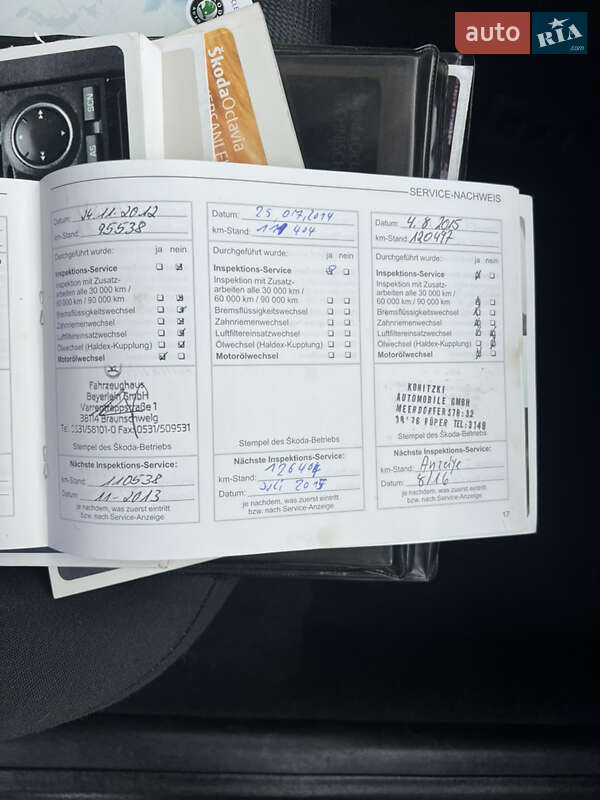 auto RIA .com
SCN
AS
Škoda Octavia
SERVICE-NACHWEIS
Datum: 14.11.2012
km-Stand: 95538
Durchgeführt wurde: ja nein
Inspektions-Service
Inspektion mit Zusatz-
arbeiten alle 30 000 km /
60 000 km / 90 000 km
Bremsflüssigkeitswechsel
Zahnriemenwechsel
Luftfiltereinsatzwechsel
Ölwechsel (Haldex-Kupplung)
Motorölwechsel
Fahrzeughaus
Beyerlein GmbH
Varrentrappstraße 1
38114 Braunschweig
Tel. 0531/58101-0 Fax: 0531/509531
Stempel des Škoda-Betriebs
Nächste Inspektions-Service:
km-Stand: 110538
Datum: 11-2013
je nachdem, was zuerst eintritt
bzw. nach Service-Anzeige
Datum: 25.07.2014
km-Stand: 111 404
Durchgeführt wurde: ja nein
Inspektions-Service
Inspektion mit Zusatz-
arbeiten alle 30 000 km /
60 000 km / 90 000 km
Bremsflüssigkeitswechsel
Zahnriemenwechsel
Luftfiltereinsatzwechsel
Ölwechsel (Haldex-Kupplung)
Motorölwechsel
Stempel des Škoda-Betriebs
Nächste Inspektions-Service:
km-Stand: 126404
Datum: Juli 2015
je nachdem, was zuerst eintritt
bzw. nach Service-Anzeige
Datum: 4.8.2015
km-Stand: 120497
Durchgeführt wurde: ja nein
Inspektions-Service
Inspektion mit Zusatz-
arbeiten alle 30 000 km /
60 000 km / 90 000 km
Bremsflüssigkeitswechsel
Zahnriemenwechsel
Luftfiltereinsatzwechsel
Ölwechsel (Haldex-Kupplung)
Motorölwechsel
KONITZKI
AUTOMOBILE GMBH
MEERDORFER STR. 32
RÜPER TEL: 3149
Stempel des Škoda-Betriebs
Nächste Inspektions-Service:
km-Stand: Anzeige
Datum: 8/16
je nachdem, was zuerst eintritt
bzw. nach Service-Anzeige
17